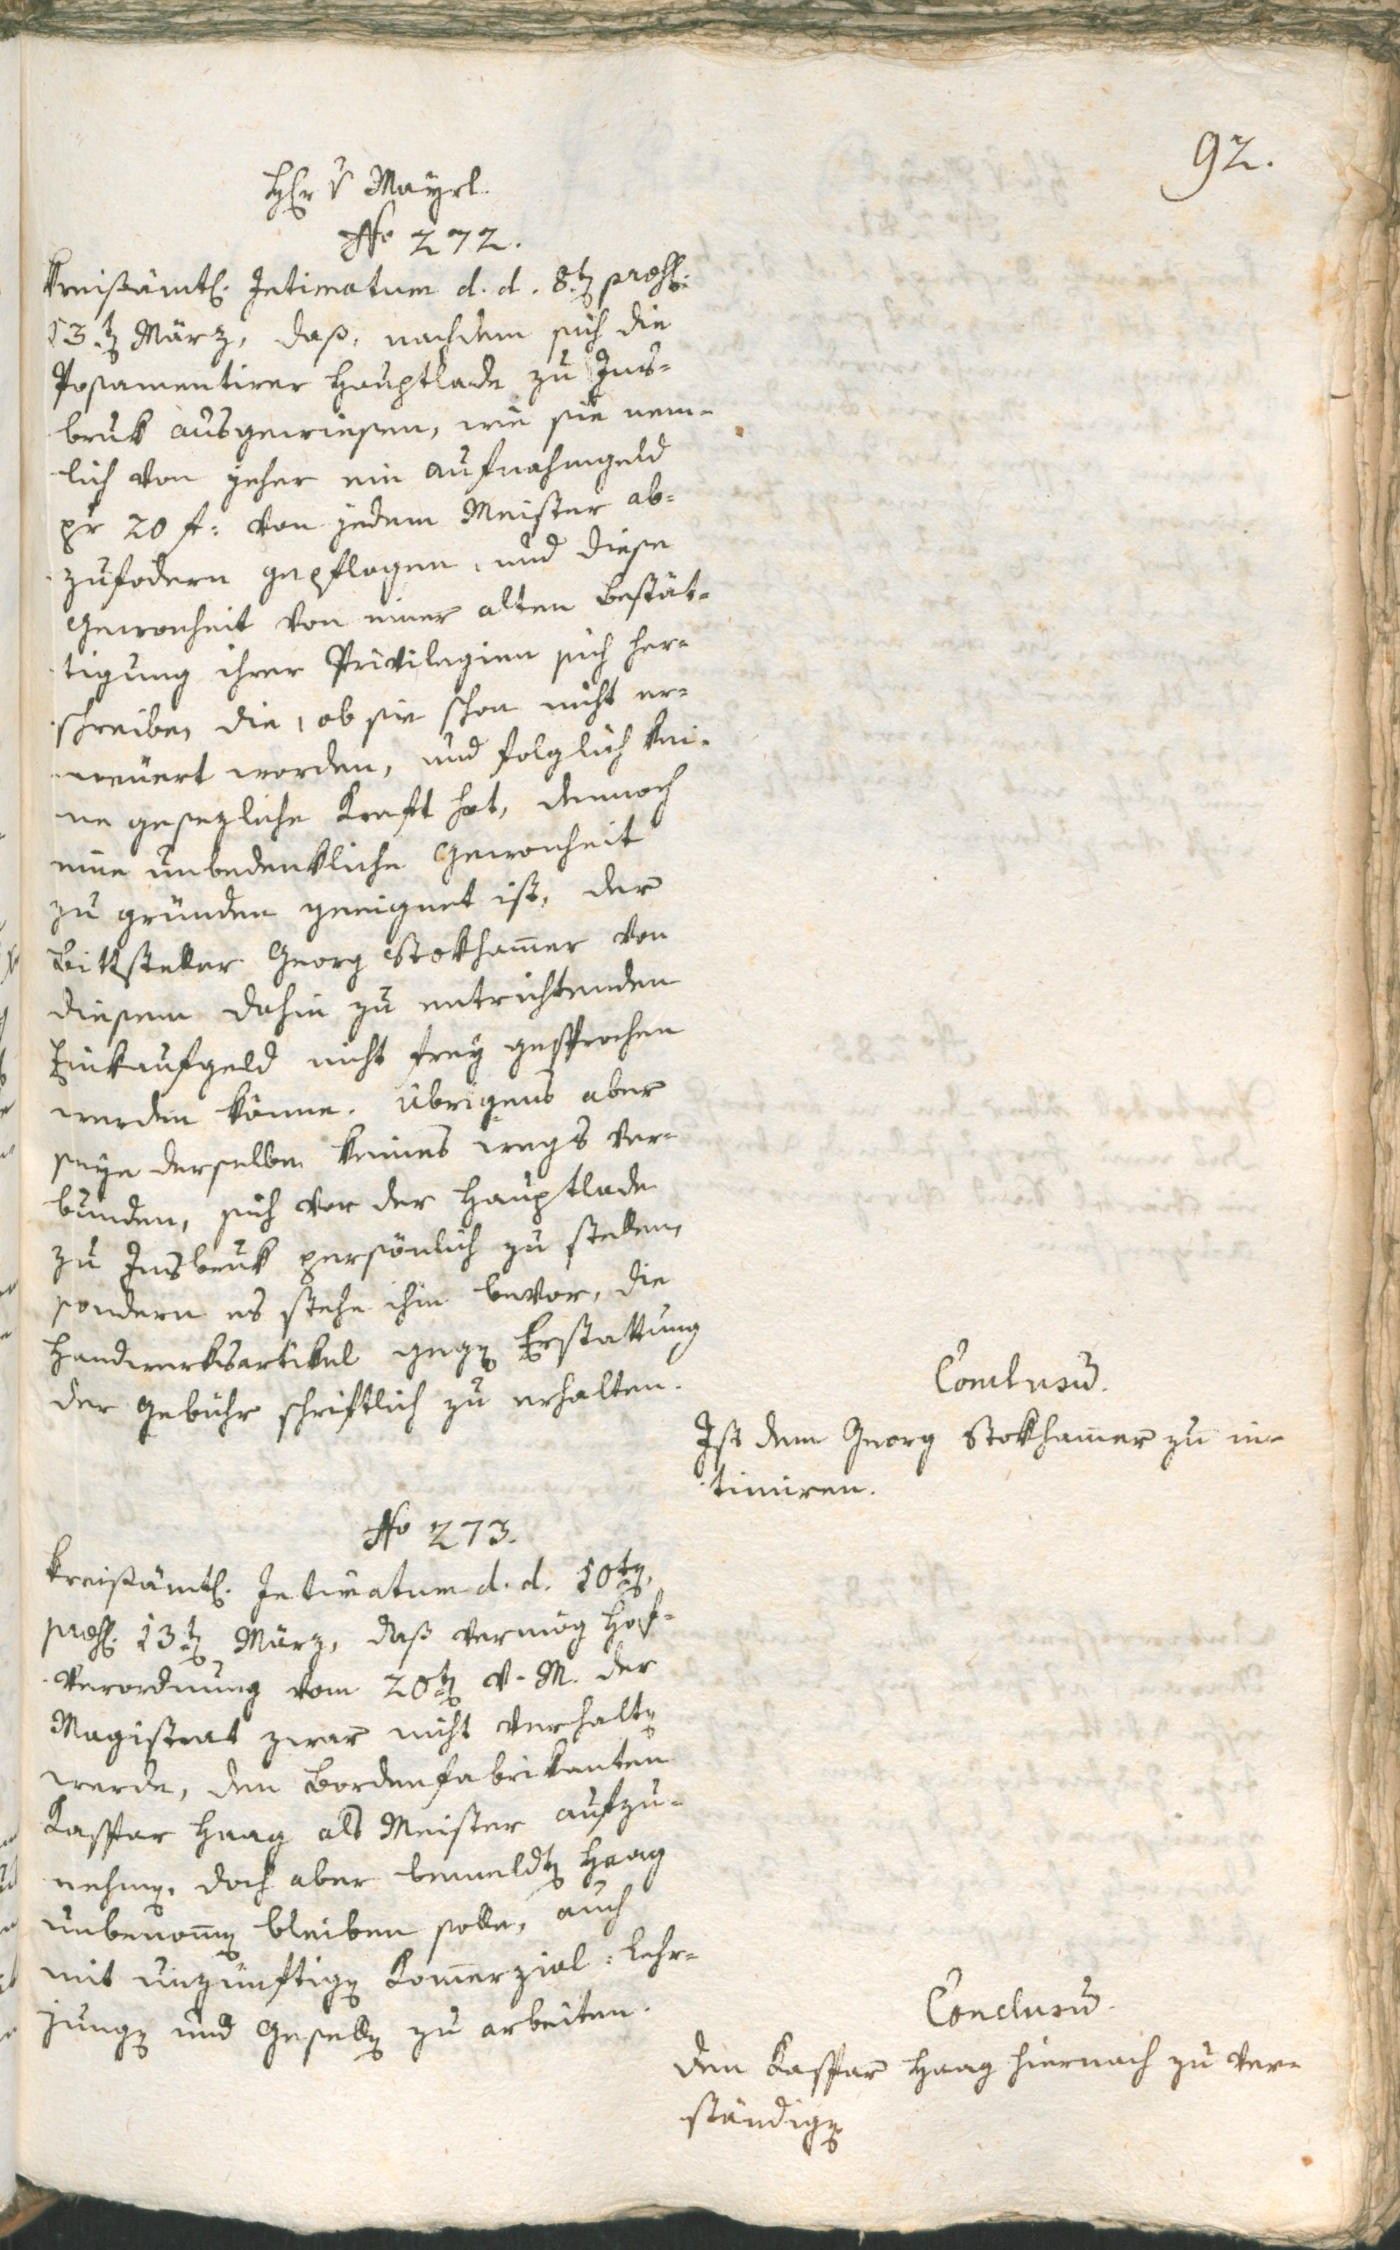 92.
H[err] v Mayrl.
No 272.
Kreißämtl. Intimatum d. d. 8.t[en] præs[.]
13.t[en] März, daß, nachdem sich die
Posamentirer Hauptlade zu Ins-
bruk ausgewiesen, wie sie nem-
lich von jeher ein Aufnahmgeld
pr 20 f: von jedem Meister ab-
zufodern gepflogen, und diese
Gewonheit von einer alten Bestät-
tigung ihrer Privilegien sich her-
schreibe, die, ob sie schon nicht er-
neuert worden, und folglich kei-
ne gesezliche Kraft hat, dennoch
eine unbedenkliche Gewonheit
zu gründen geeignet ist, der
Bittsteller Georg Stokham̄er von
diesem dahin zu entrichtenden
Einkaufgeld nicht frey gesprochen
werden könne. Übrigens aber
seye derselbe keines wegs ver-
bunden, sich vor der Hauptlade
zu Insbruk persönlich zu stellen,
sondern es stehe ihm bevor, die
Handwerksartikel geg[en] Erstattung
der Gebühr schriftlich zu erhalten.
Conclusū.
Ist dem Georg Stokham̄er zu in-
timiren.
No 273.
Kreißämtl. Intimatum d. d. 10t[en],
præs. 13.t[en] März, daß vermög Hof-
Verordnung vom 20t[en] v. M. der
Magistrat zwar nicht verhalt[en]
werde, den Bordenfabrikanten
Kaspar Haag als Meister aufzu-
nehm[en], doch aber bemeldt[en] Haag
unbenom̄[en] bleiben solle, auch
mit unzünftig[en] Kom̄erzial-Lehr-
jung[en] und Gesell[en] zu arbeiten.
Conclusū.
Den Kaspar Haag hiernach zu ver-
ständig[en]